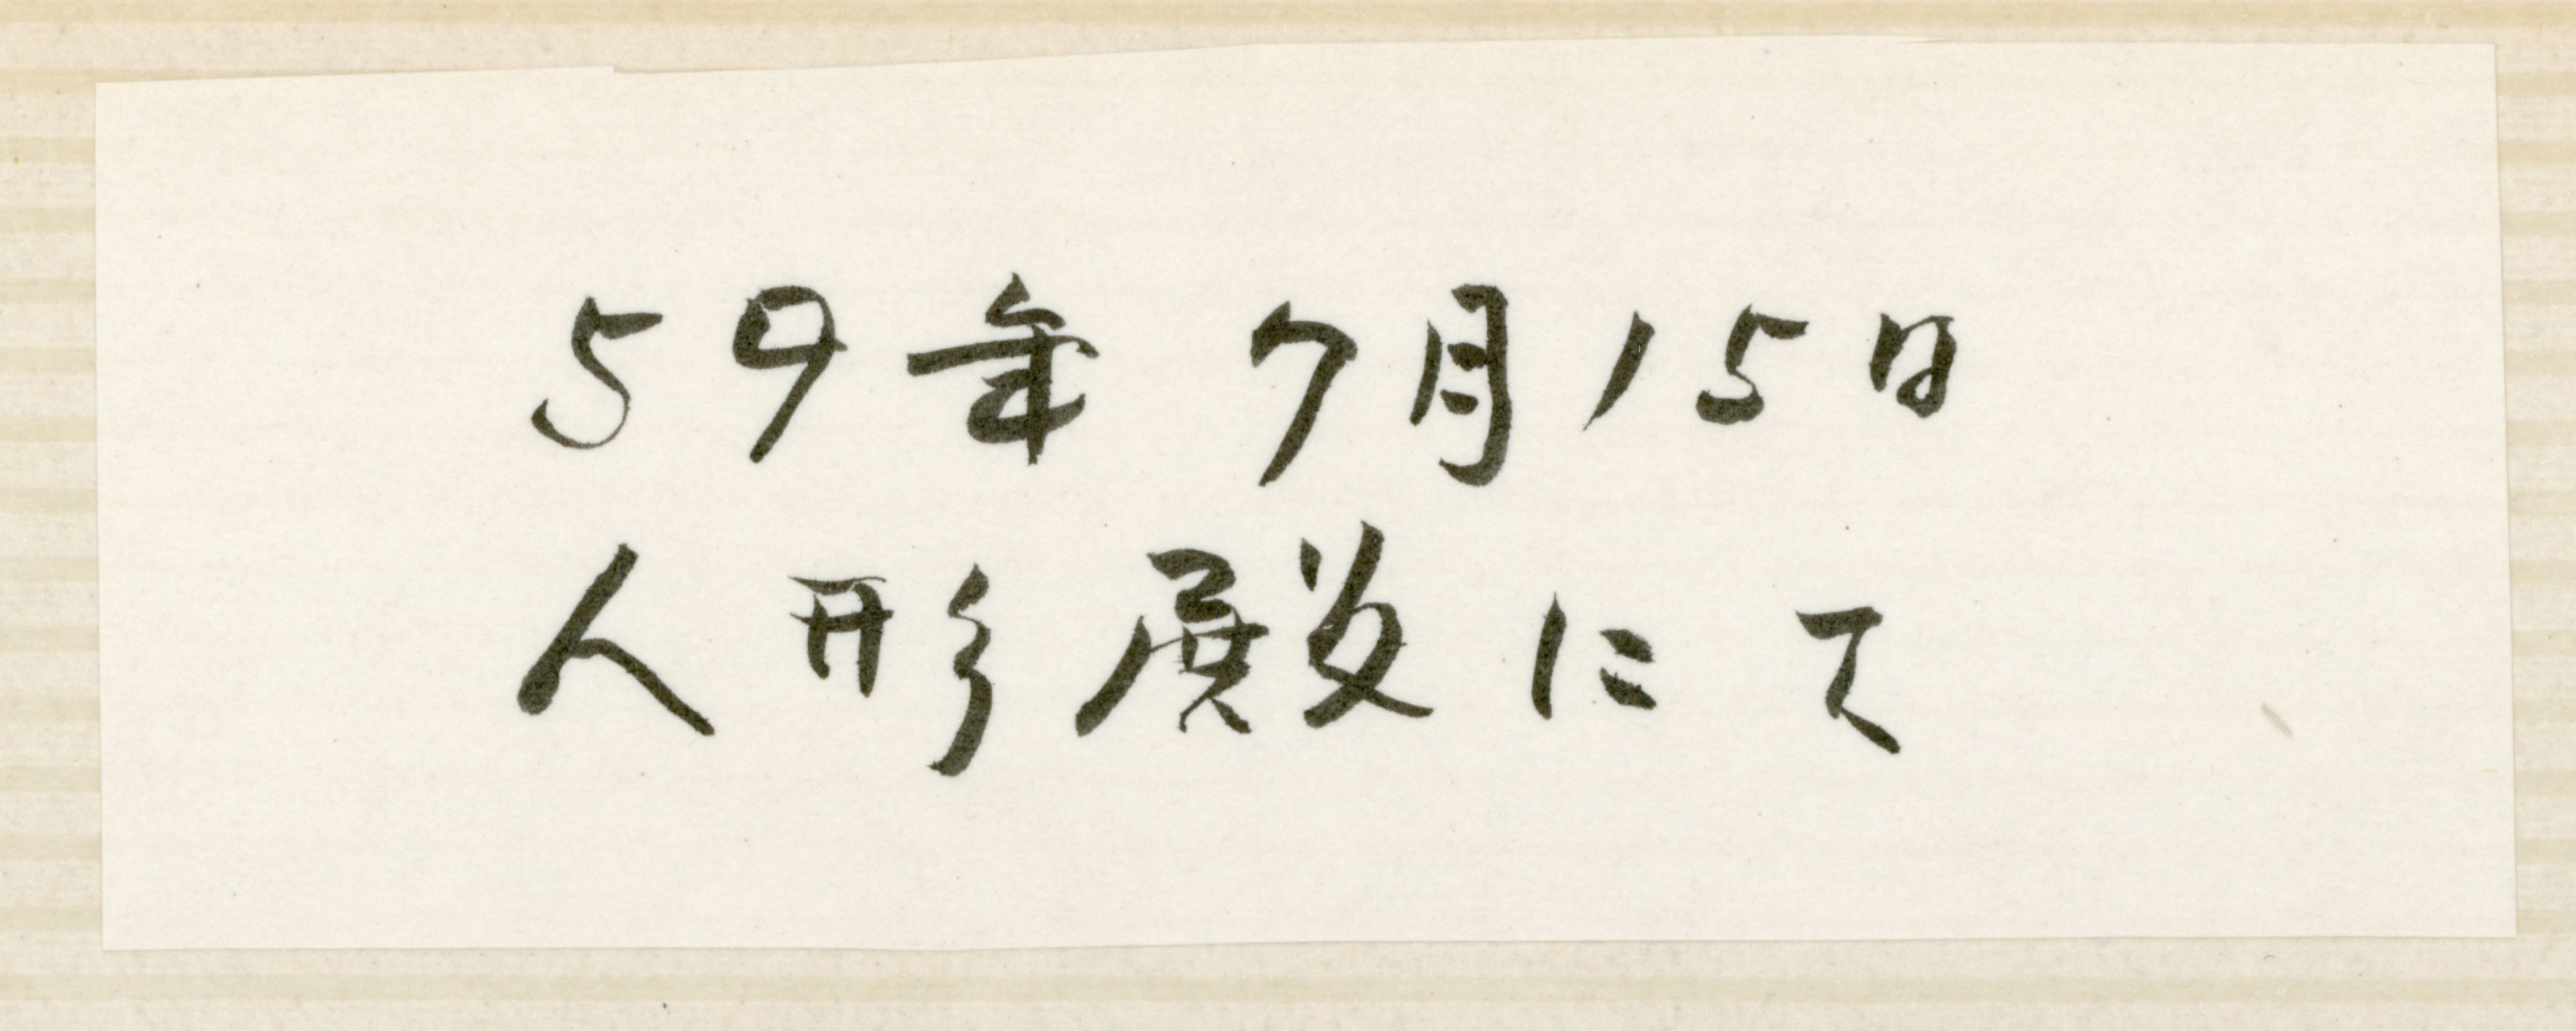 59年 7月15日
人形殿にて